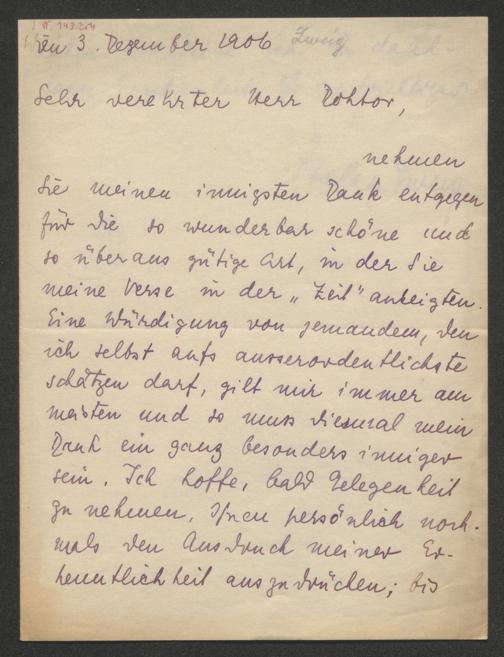 I. N. 143.264
Wien 3. Dezember 1906 Zweig
Sehr verehrter Herr Doktor,
nehmen
Sie meinen innigsten Dank entgegen
für die so wunderbar schöne und
so überaus gütige Art, in der Sie
meine Verse in der „Zeit" anzeigten.
Eine Würdigung von jemandem, den
ich selbst aufs ausserordentlichste
schätzen darf, gilt mir immer am
meisten und so muss diesmal mein
Dank ein ganz besonders inniger
sein. Ich hoffe, bald Gelegenheit
zu nehmen, Ihnen persönlich noch-
mals den Ausdruck meiner Er-
kenntlichkeit auszudrücken; bis